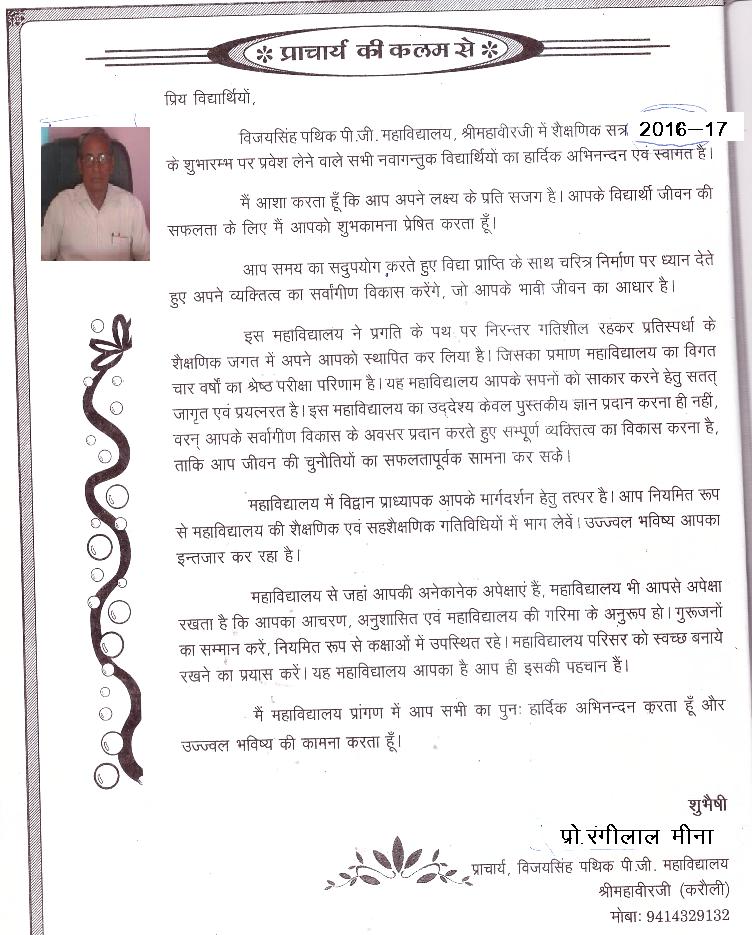 * प्राचार्य की कलम से *
प्रिय विद्यार्थियों,
विजयसिंह पथिक पी.जी. महाविद्यालय, श्रीमहावीरजी में शैक्षणिक सत्र 2016-17
के शुभारम्भ पर प्रवेश लेने वाले सभी नवागन्तुक विद्यार्थियों का हार्दिक अभिनन्दन एवं स्वागत है।
मैं आशा करता हूँ कि आप अपने लक्ष्य के प्रति सजग है। आपके विद्यार्थी जीवन की
सफलता के लिए मैं आपको शुभकामना प्रेषित करता हूँ।
आप समय का सदुपयोग करते हुए विद्या प्राप्ति के साथ चरित्र निर्माण पर ध्यान देते
हुए अपने व्यक्तित्व का सर्वांगीण विकास करेंगे, जो आपके भावी जीवन का आधार है।
इस महाविद्यालय ने प्रगति के पथ पर निरन्तर गतिशील रहकर प्रतिस्पर्धा के
शैक्षणिक जगत में अपने आपको स्थापित कर लिया है। जिसका प्रमाण महाविद्यालय का विगत
चार वर्षों का श्रेष्ठ परीक्षा परिणाम है। यह महाविद्यालय आपके सपनों को साकार करने हेतु सतत्
जागृत एवं प्रयत्नरत है। इस महाविद्यालय का उद्देश्य केवल पुस्तकीय ज्ञान प्रदान करना ही नहीं,
वरन् आपके सर्वांगीण विकास के अवसर प्रदान करते हुए सम्पूर्ण व्यक्तित्व का विकास करना है,
ताकि आप जीवन की चुनौतियों का सफलतापूर्वक सामना कर सकें।
महाविद्यालय में विद्वान प्राध्यापक आपके मार्गदर्शन हेतु तत्पर है। आप नियमित रूप
से महाविद्यालय की शैक्षणिक एवं सहशैक्षणिक गतिविधियों में भाग लेवें। उज्ज्वल भविष्य आपका
इन्तजार कर रहा है।
महाविद्यालय से जहां आपकी अनेकानेक अपेक्षाएं हैं, महाविद्यालय भी आपसे अपेक्षा
रखता है कि आपका आचरण, अनुशासित एवं महाविद्यालय की गरिमा के अनुरूप हो। गुरूजनों
का सम्मान करें, नियमित रूप से कक्षाओं में उपस्थित रहे। महाविद्यालय परिसर को स्वच्छ बनाये
रखने का प्रयास करें। यह महाविद्यालय आपका है आप ही इसकी पहचान हैं।
मैं महाविद्यालय प्रांगण में आप सभी का पुनः हार्दिक अभिनन्दन करता हूँ और
उज्ज्वल भविष्य की कामना करता हूँ।
शुभैषी
प्रो.रंगीलाल मीना
प्राचार्य, विजयसिंह पथिक पी.जी. महाविद्यालय
श्रीमहावीरजी (करौली)
मोबाः 9414329132